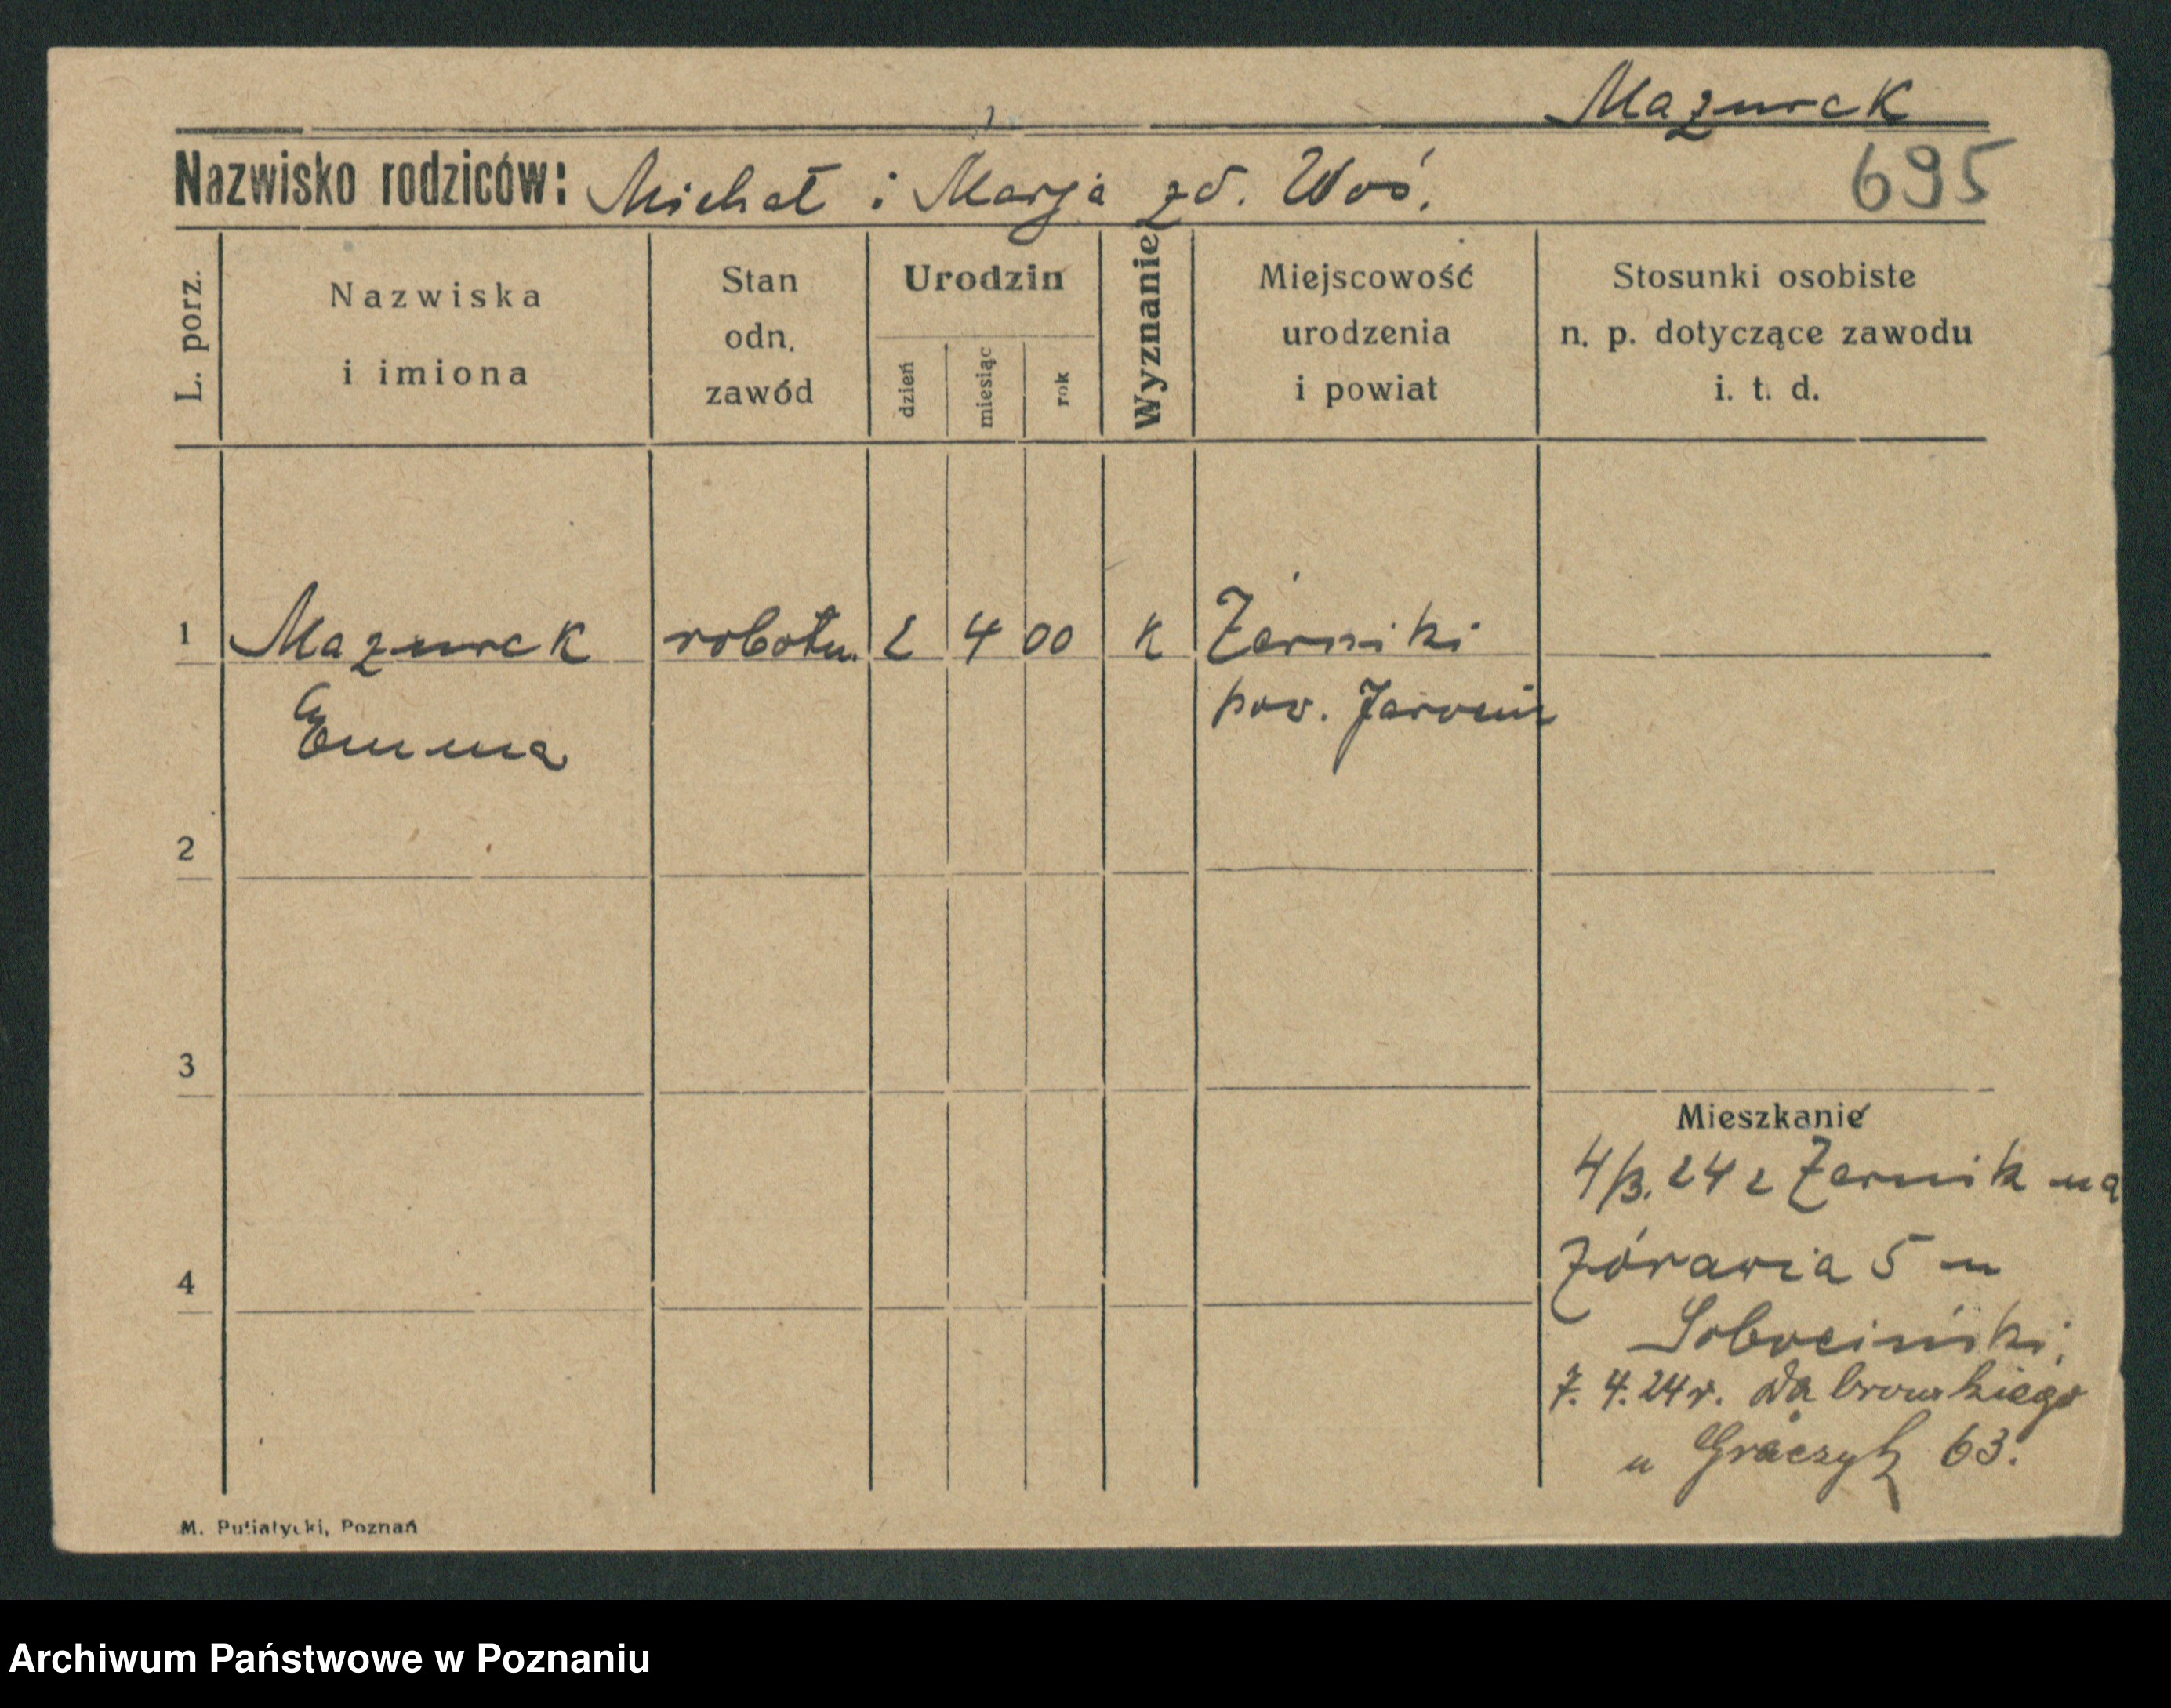 Mazurek
Nazwisko rodziców: Michał i Marja zd. Woś.
695
L. porz.
Nazwiska
i imiona
Stan
odn.
zawód
Urodzin
dzień
miesiąc
rok
Wyznanie
Miejscowość
urodzenia
i powiat
Stosunki osobiste
n. p. dotyczące zawodu
i. t. d.
1 Mazurek robotn. 2 4 00 K Żerniki
Emma pow. Jarocin
2
3
Mieszkanie
4/3. 24 z Żernik na
Żórawia 5 u
4
Sobociński
7. 4. 24 r. Dąbrowskiego
u Graczyk 63.
M. Putiatycki, Poznań
Archiwum Państwowe w Poznaniu